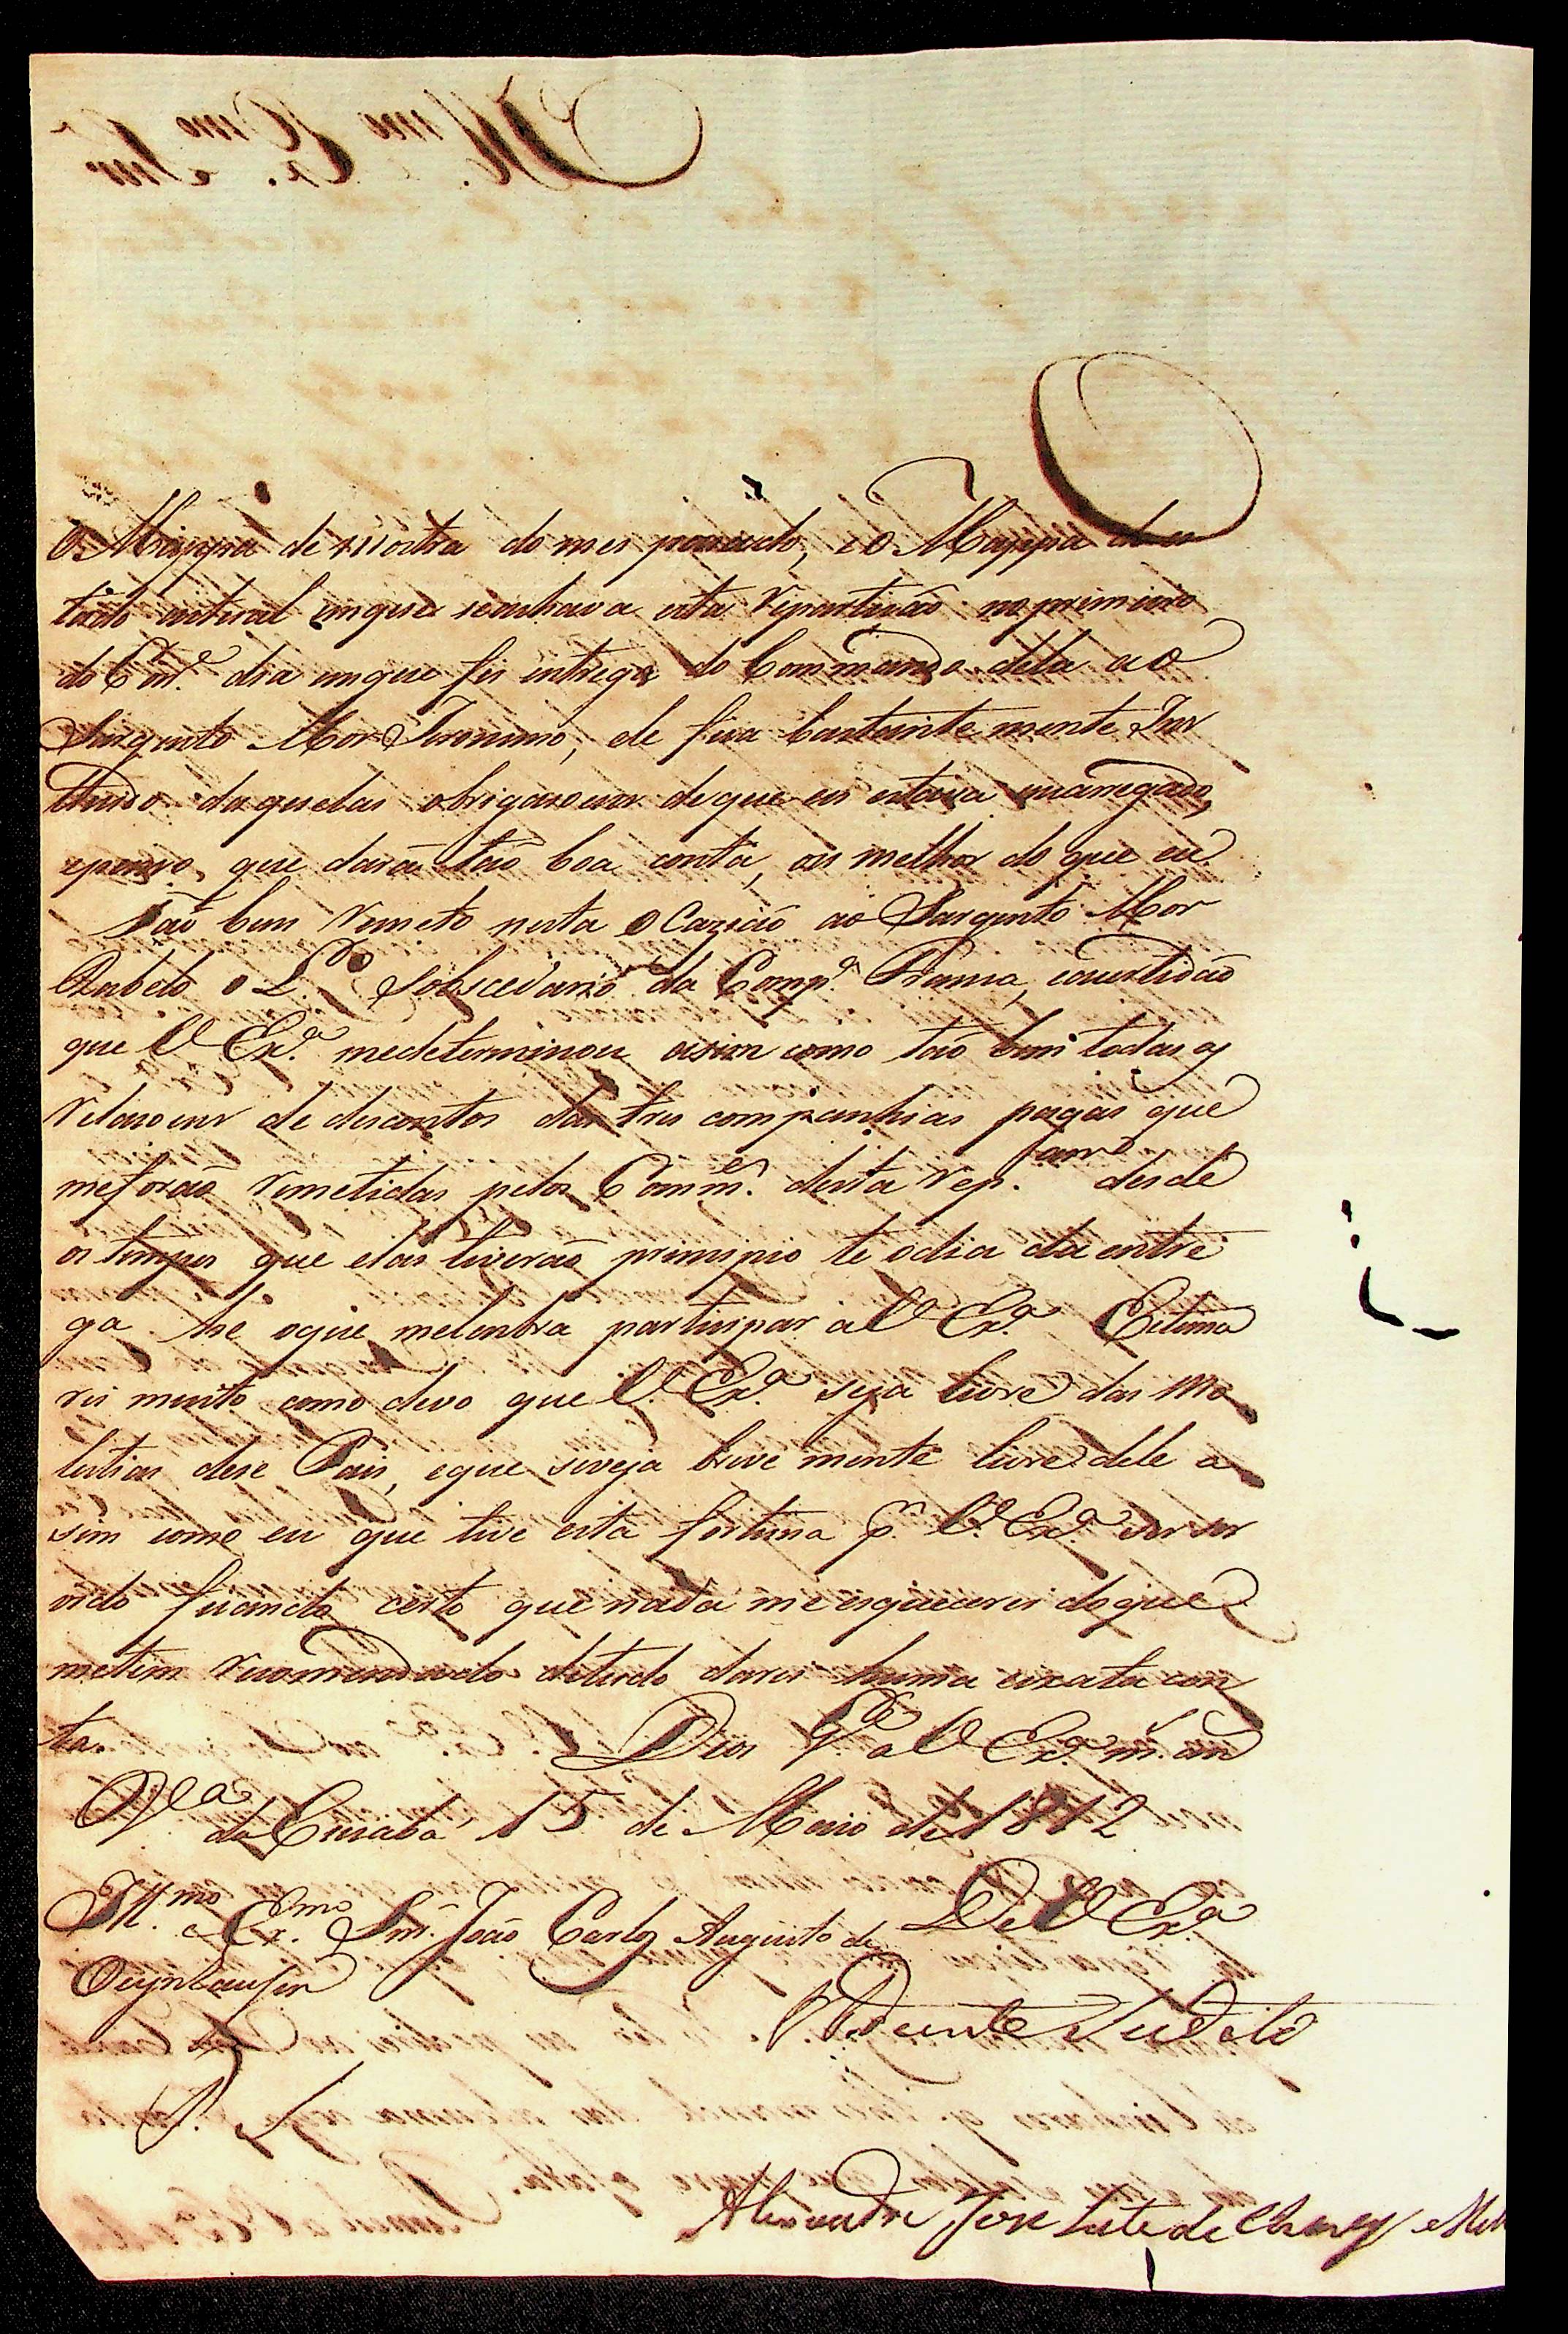 O Mappa de mostra do mes passado, e o Mappa do es
tado actual emque se achava esta Repartição no primeiro
do Corr.e dia emque fis entrega do Commando dela ao
Sargento Mor Jeronimo, ele fica bastante mente Ins
truido daquelas obrigasoens deque eu estava encarregado,
epenso, que dará tão boa conta, ou melhor do que eu.
Tão bem Remeto nesta Ocazião ao Sargento Mor
Rabelo o L.º da Comp.ª Franca, ecertidão
que V Ex.ª medeterminou asim como tão bem todas as
Relasoens de descontos das tres companhias pagas que
meforão Remetidas pelos Comm.es desta Rep.am desde
os tempos que elas tiverão prinsipio te odia da entre
ga he oque melembra partisipar a V Ex.ª Estima
rei muito como devo que V. Ex.ª seja livre das mo
lestias dese Pais, eque seveja breve mente livre dele a
sim como eu que tive esta fortuna p.r V. Ex.ª ser ser
vido ficando certo que nada me esquecerei doque
metem Recomendado detudo darei huma exzata con
ta. Deos G.e a V Ex.ª m.s an
V.la do Cuiabá 15 de Maio de 1812
Ill.mo e Ex.mo Snr. João Carlos Augusto de De V Ex.ª
Oeynhausen

Alexandre Jose Leite de Chaves e Mello